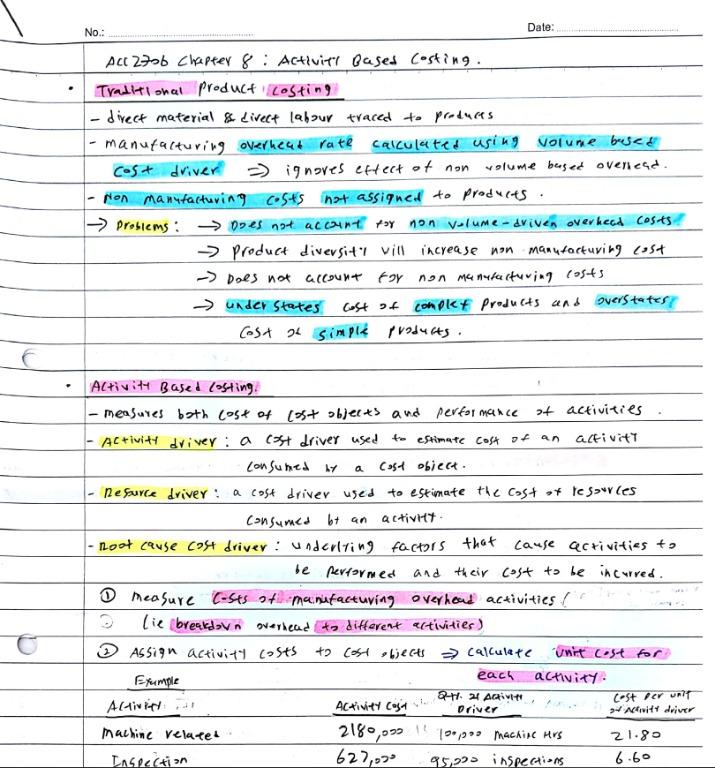 No.:
Date:
ACC 270b Chapter 8 : Activity Based Costing.
• Traditional product costing
- direct material & direct labour traced to products
- manufacturing overhead rate calculated using volume based
cost driver ⇒ ignores effect of non volume based overhead.
- Non manufacturing costs not assigned to products.
→ Problems: → Does not account for non volume-driven overhead costs
→ product diversity will increase non manufacturing cost
→ Does not account for non manufacturing costs
→ understates cost of complex products and overstates
cost of simple products.
• Activity Based Costing.
- measures both cost of cost objects and performance of activities.
- Activity driver: a cost driver used to estimate cost of an activity
consumed by a cost object.
- Resource driver: a cost driver used to estimate the cost of resources
consumed by an activity.
- Root cause cost driver: underlying factors that cause activities to
be performed and their cost to be incurred.
① measure costs of manufacturing overhead activities
(ie breakdown overhead to different activities)
② Assign activity costs to cost objects ⇒ calculate unit cost for
each activity.
Example
Activity Activity Cost Qty. of Activity Driver Cost per unit of Activity driver
Machine related 2180,000 100,000 machine Hrs 21.80
Inspection 627,000 95,000 inspections 6.60